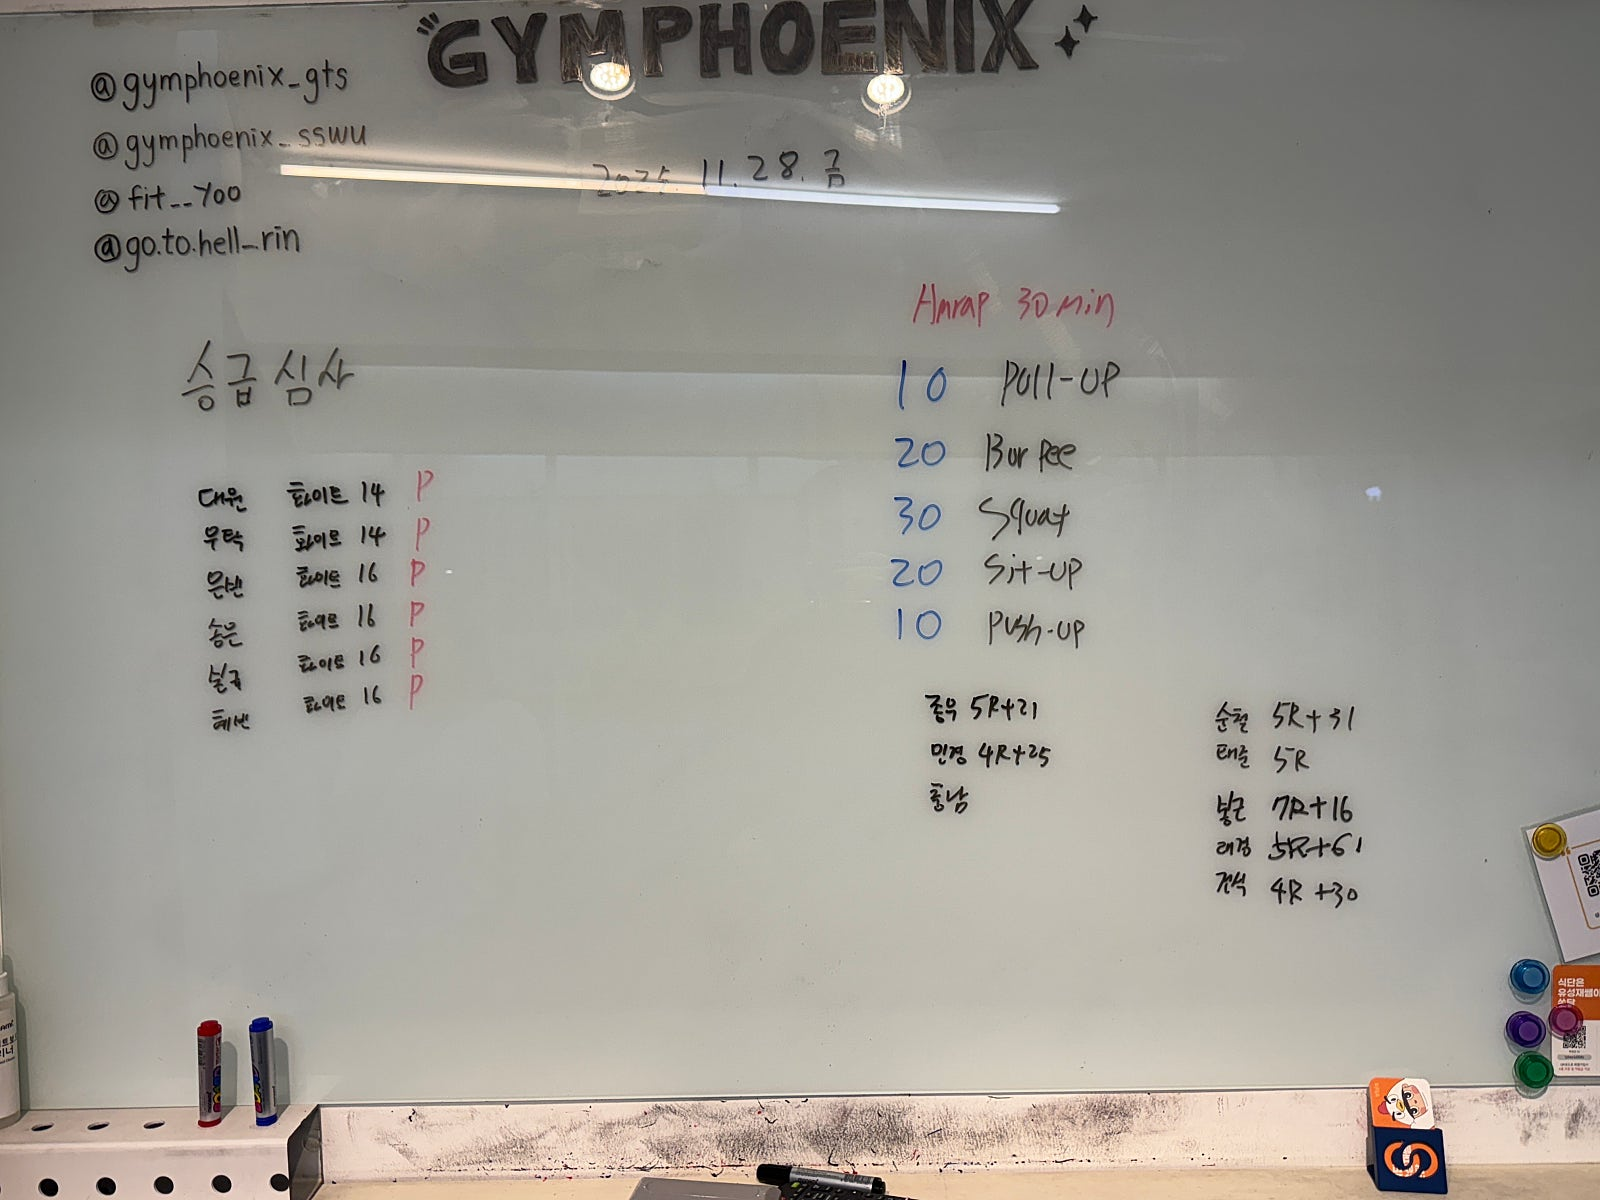 GYMPHOENIX
@gymphoenix_gts
@gymphoenix_sswu
@fit__yoo
@go.to.hell_rin
2025. 11. 28. 금
승급 심사
대원 화이트 14 P
무탁 화이트 14 P
화이트 16 P
송은 화이트 16 P
화이트 16 P
혜빈 화이트 16 P
Amrap 30min
10 Pull-UP
20 Burpee
30 Squat
20 Sit-up
10 Push-up
종우 5R+21
민경 4R+25
충남
순철 5R+31
태준 5R
봉근 7R+16
태경 5R+61
건식 4R+30
식단은
유성재쌤이